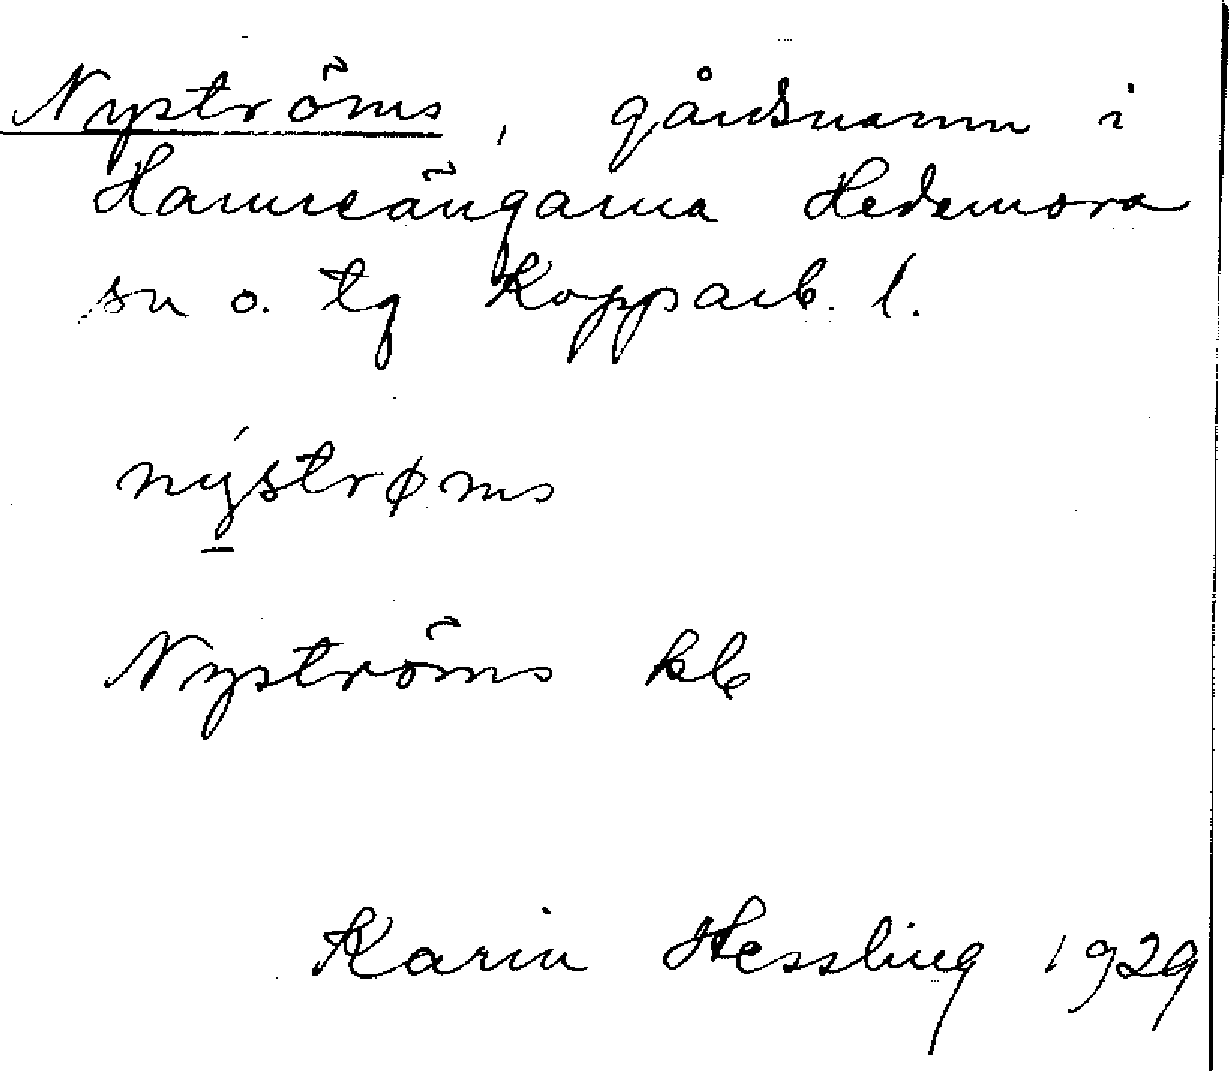 Nyströms, gårdsnamn i
Hamreängarna Hedemora
sn o. tg Kopparb. l.
nýstrøms
Nyströms kb
Karin Hessling 1929